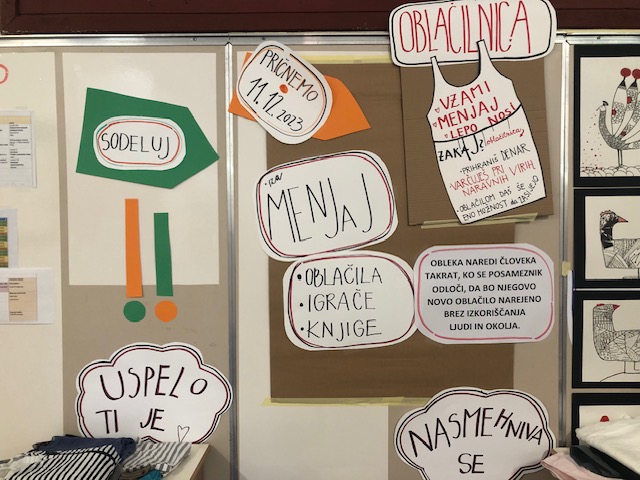 OBLAČILNICA
PRIČNEMO
11.12.2023
SODELUJ
!!
VZAMI
MENJAJ
LEPO NOSI
ZAKAJ? oblačilnica
• PRIHRANIŠ DENAR
VARČUJEŠ PRI
NARAVNIH VIRIH
• OBLAČILOM DAŠ ŠE
ENO MOŽNOST
MENJAJ
• OBLAČILA
• IGRAČE
• KNJIGE
OBLEKA NAREDI ČLOVEKA
TAKRAT, KO SE POSAMEZNIK
ODLOČI, DA BO NJEGOVO
NOVO OBLAČILO NAREJENO
BREZ IZKORIŠČANJA
LJUDI IN OKOLJA.
USPELO
TI JE
NASMEHNIVA
SE